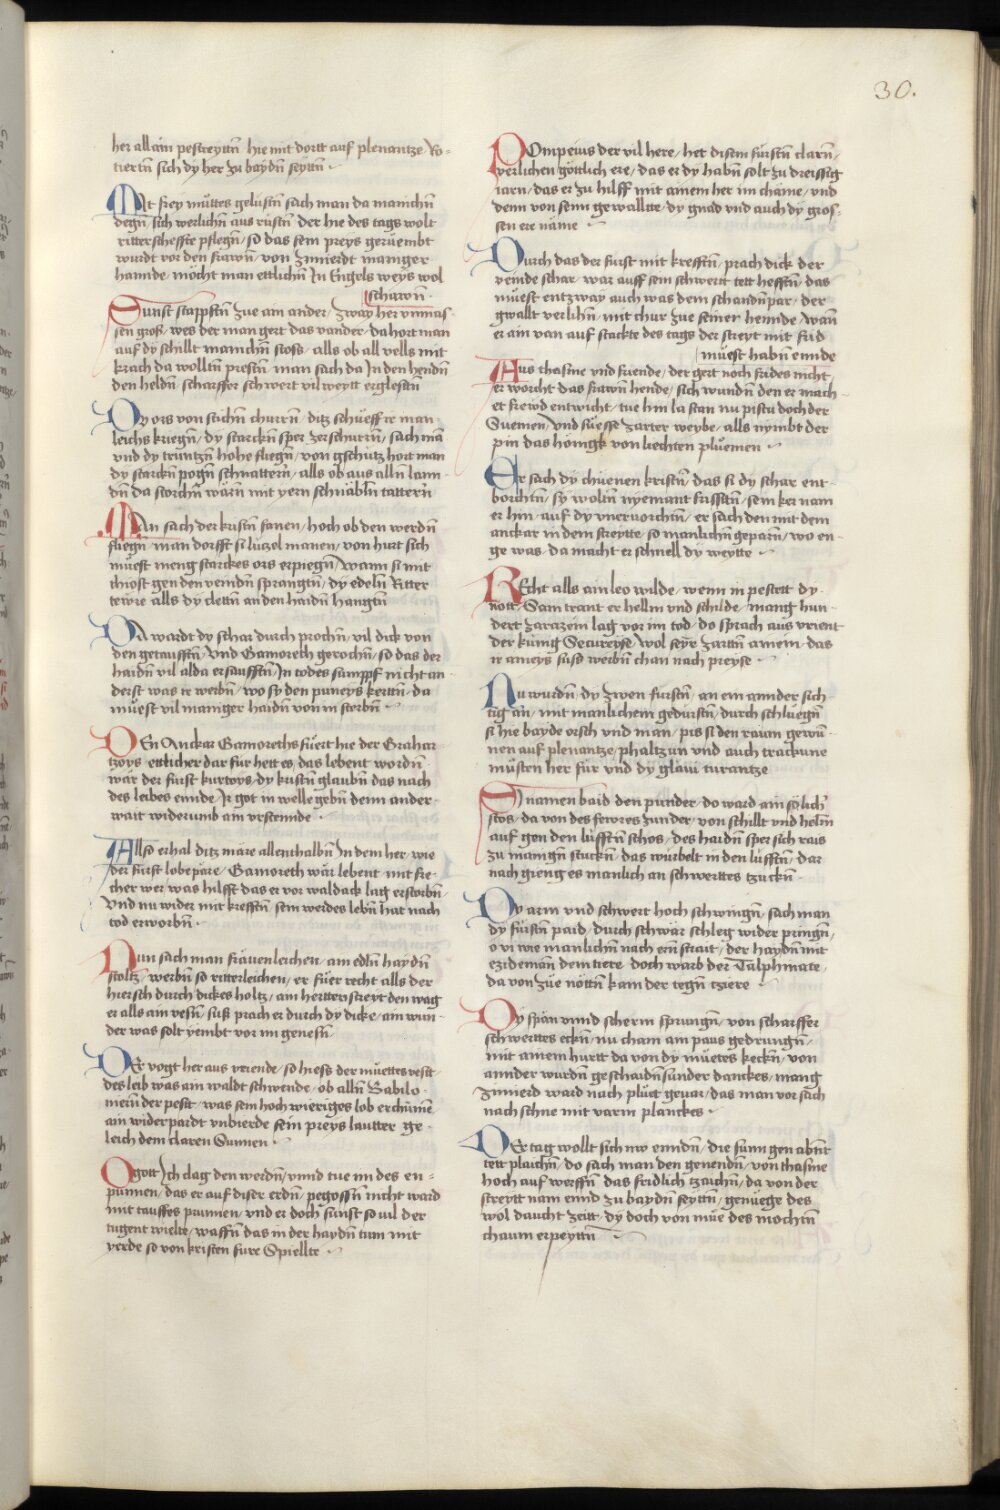 30.
her allain pestreyttñ hie mit dortt auf plenantze Ro-
tiertñ sich dy her zu baydñ seyttñ
Mit frey muttes gelustñ sach man da manichñ
degñ sich werlichñ aus rustñ der hie des tags wolt
ritterscheffte pflegñ so das sein preys geruembt
wurdt vor den frawñ von zimierdt maniger
hannde möcht man ettlichñ In Engels weys wol
schawñ
Sunst stappftñ zue ain ander zway her vnmas-
sen gros wes der man gert das vander da hort man
auf dy schillt manichñ stoss alls ob all vells mit
krach da wolltñ prestñ man sach da In den hendñ
den heldñ scharffer schwert vil weytt erglestñ
Dy ors von stichñ churrñ ditz schueff ir man-
leichs kriegñ dy starckñ sper zerschurrñ sach mã
vnd dy truntzñ hohe fliegñ von gschutz hort man
dy starckñ pogñ schnatterñ alls ob aus allñ lann-
dñ da storchñ wärñ mit yern schnäblñ tatterñ
Man sach der kristñ fanen hoch ob den werdñ
fliegñ man dorfft si lutzel manen von hurt sich
muest meng starckes ors erpiegñ wann si mit
thiost gen den veindñ sprangtñ dy edelñ Ritter
tewre alls dy clettñ an den haidñ hangtñ
Da wardt dy schar durch prochñ vil dick von
den getaufftñ vnd Gamoreth gerochñ so das der
haidñ vil alda ersaufftñ In todes sampff nicht an-
derst was ir werbñ wo sy den puneys kertñ da
muest vil maniger haidñ von in sterbñ
Den Anckar Gamoreths fuert hie der Grahar-
tzoys ettlicher dar fur hett es das lebent wordñ
wär der furst kurtoys dy kristñ glaubñ das nach
des leibes ennde Ir got in welle gebñ denn ander-
wait widerumb am vrstennde
Allso erhal ditz märe allenthalbñ In dem her wie
der furst lobepäre Gamoreth wär lebent mit fre-
cher wer was hilfft das er vor waldack lag erstorbñ
vnd nu wider mit krefftñ sein werdes lebñ hat nach
tod erworbñ
Nun sach man frauenleichen am edlñ haydñ
stoltz werbñ so ritterleichen er fuer recht alls der
hiersch durch dickes holtz am hertten streyt den wag
er alls ain vesñ suss prach er durch dy dicke ain wun-
der was solt yembt vor im genesñ
Der vogt her aus vriende so hiess der muettes vesst
des leib was ain waldt schwende ob allñ Babilo-
nierñ der pesst was sein hoch wieriges lob erchunne
ain widerpardt vnbierde sein preys lautter ge-
leich dem claren Sunnen
O gott Ich clag den werdñ vnnd tue im des en-
punnen das er auf diser erdñ pegossñ nicht ward
mit tauffes prunnen vnd er doch sunst so vil der
tugent wielte waffñ das in der haydñ tum mit
verde so von kristen fure Spiellte
Pompeius der vil here het disem furstñ clarñ
werlichen göttlich ere das er dy habñ solt zu dreissig
iarn das er zu hilff mit ainem her im chäme vnd
denn von seim gewalltte dy gnad vnd auch dy gros-
sen ere näme
Durch das der furst mit krefftñ prach dick der
veinde schar war auff sein schwert tett hefftñ das
muest entzway auch was dem schandñ par der
gwallt verlihñ mit chur zue seiner hennde wañ
er ain van auf stackte des tags der streyt mit frid
muest habñ ennde
Aus thasme vnd friende der gert noch frides nicht
er worcht das frawñ hende sich wundñ den er mach-
et frewd entwicht tue hin la stan nu pistu doch der
Suemen vnd suesse zarter weybe alls nymbt der
pin das hönigk von liechten pluemen
Er sach dy chuenen kristñ das si dy schar ent-
worchtñ sy woltñ nyemant fristtñ sein ker nam
er hin auf dy vnervorchtñ er sach den mit dem
anckar in dem streytte so manlichñ geparñ wo en-
ge was da macht er schnell dy weytte
Recht alls ain leo wilde wenn in pestett dy
nott Sam trant er hellm vnd schilde mang hun-
dert zarazein lag vor im tod do sprach aus vrient
der kunig Secureyse wol seyr zarttñ amein das
ir ameys suso werbñ chan nach preyse
Nu wurdñ dy zwen furstñ an ein annder sich-
tig an mit manlichem gedurstñ durch schluegñ
si hie bayde orsch vnd man pis si den raum gewu-
nen auf plenantze phaltzun vnd auch trackune
musten her fur vnd dy glaui turantze
Si namen baid den punder do ward ain sölich
stos da von des fewres zunder von schillt vnd helm
auf gen den lufftñ schos des haidñ sper sich rais
zu manigñ stuckñ das wurbelt in den lufftñ dar
nach greng es manlich an schwerttes tzuckñ
Dy arm vnd schwert hoch schwingñ sach man
dy furstñ paid durch schwär schleg wider pringñ
o vi wie manlichñ nach erñ strait der haydñ mit
ezideman dem tiere doch warb der Talphinate
da von zue nöttñ kam der tegñ tziere
Dy span vnnd scherm sprungñ von scharffer
schwerttes eckñ nu cham am paus gedrungñ
mit ainem hurtt da von dy muetes keckñ von
annder wurdñ geschaidñ sunder danckes mang
zimierd ward nach pluet gevar das man vor sach
nach schne mit varm planckes
Der tag wollt sich nw enndñ die sunn gen abñt
tett plaichñ do sach man den genendñ von thasme
hoch auf werffñ das fridlich tzaichñ da von der
streytt nam ennd zu baydñ seyttñ genuege des
wol daucht zeitt dy doch von mue des mochtñ
chaum erpeyttñ